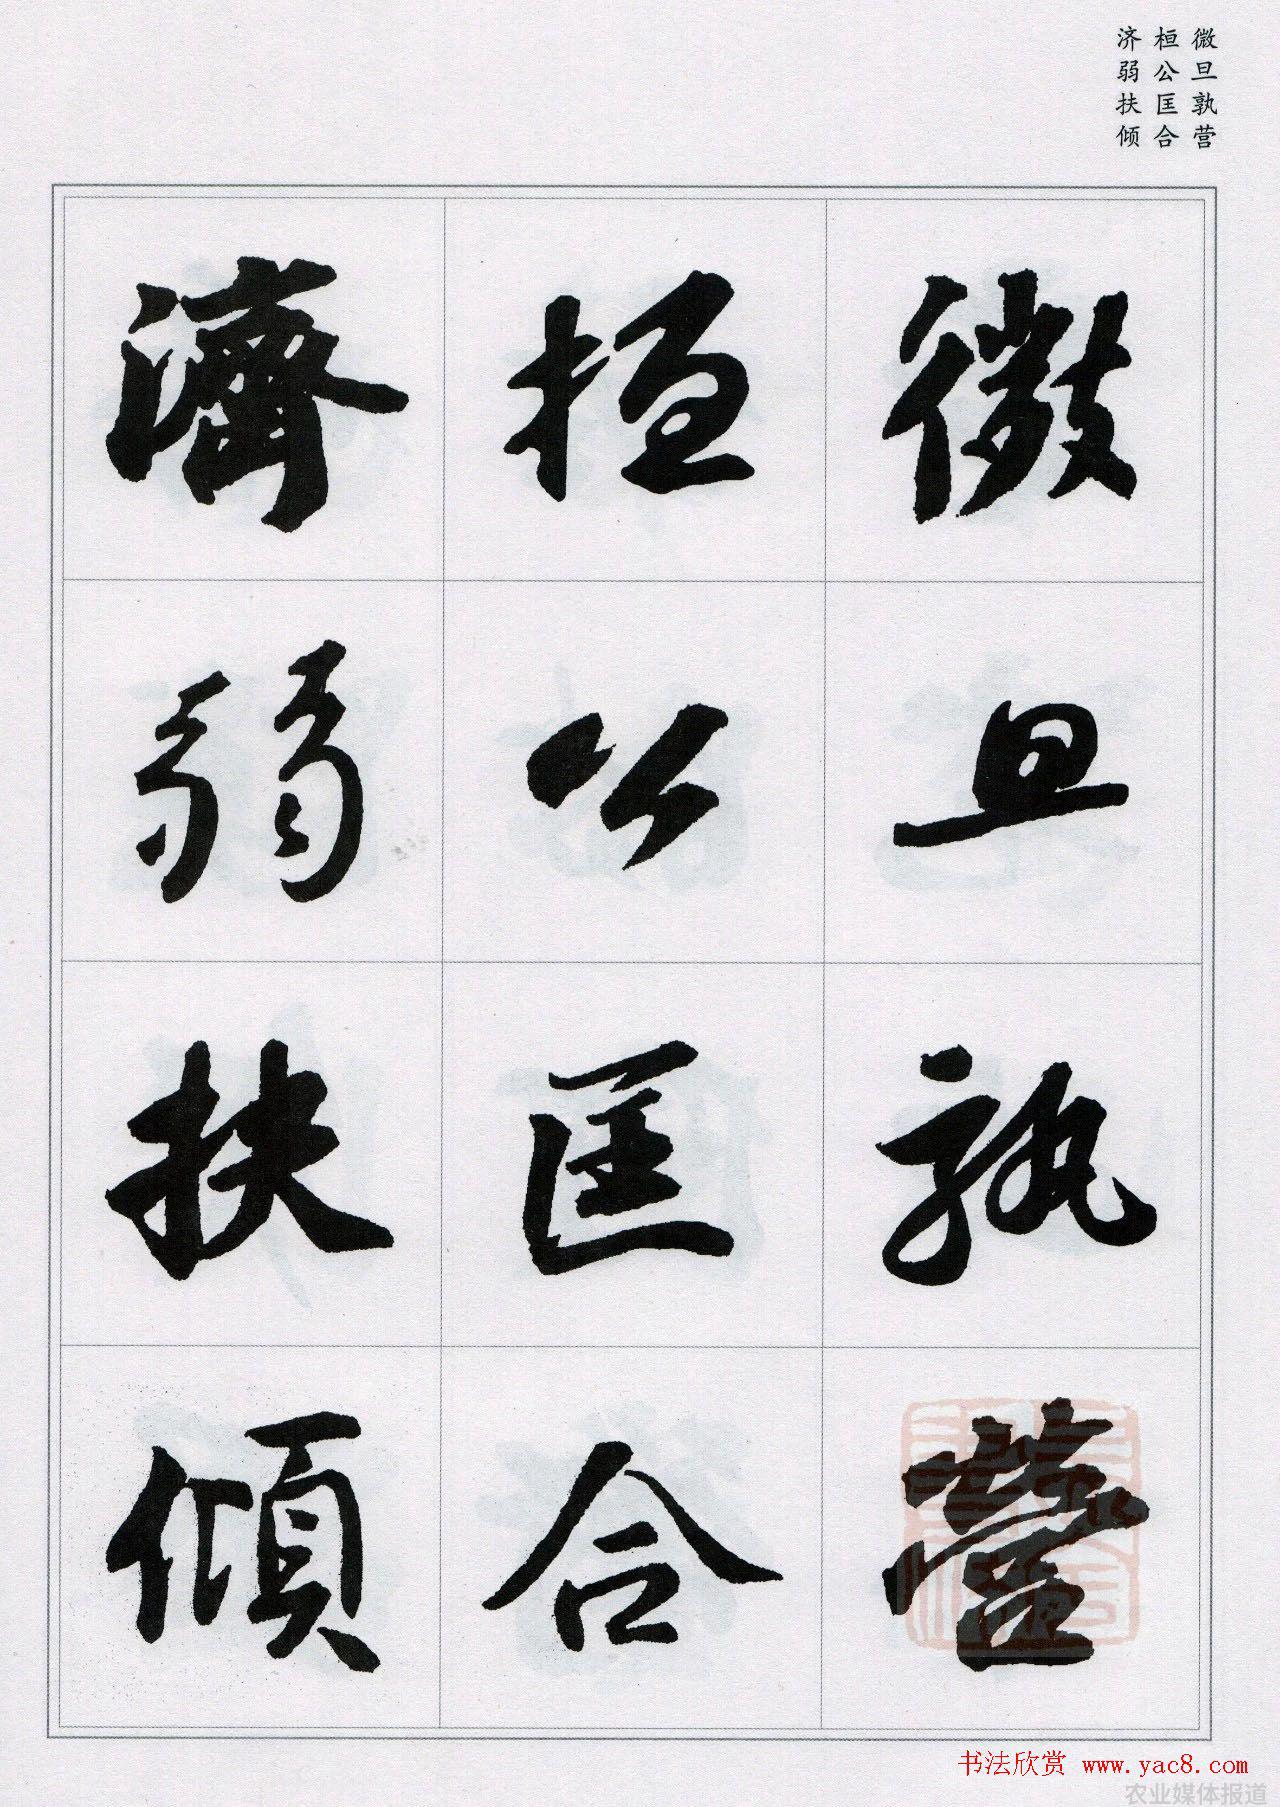 微旦孰营
桓公匡合
济弱扶倾
微旦孰營
桓公匡合
濟弱扶傾
书法欣赏 www.yac8.com
农业媒体报道